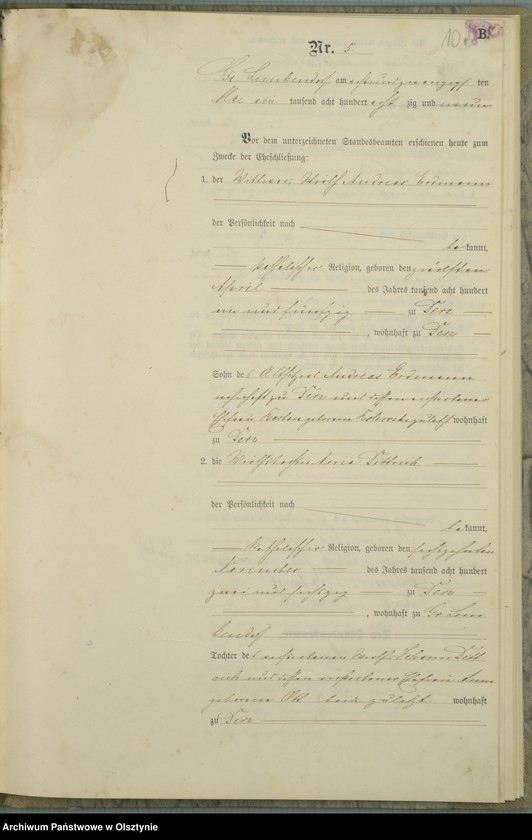 10.
B.
Nr. 5.
Gr. Lemkendorf am achtundzwanzigsten
Mai tausend acht hundert achtzig und neun
Vor dem unterzeichneten Standesbeamten erschienen heute zum
Zwecke der Eheschließung:
1. der Wittwer, Wirth Andreas Erdmann
der Persönlichkeit nach
bekannt,
katholischer Religion, geboren den
April des Jahres tausend acht hundert
ein und fünfzig zu Derz
, wohnhaft zu Derz
Sohn des Altsitzers Andreas Erdmann
wohnhaft zu Derz und dessen verstorbener
Ehefrau geborene zuletzt wohnhaft
zu Derz
2. die Wirthstochter Maria Dittrich
der Persönlichkeit nach
bekannt,
katholischer Religion, geboren den sechszehnten
November des Jahres tausend acht hundert
zwei und sechszig zu Derz
, wohnhaft zu Gr. Lem
kendorf
Tochter des verstorbenen Wirths Johann Ditt
rich und dessen verstorbener Ehefrau Anna
geborene Ott beide zuletzt wohnhaft
zu Derz
Archiwum Państwowe w Olsztynie